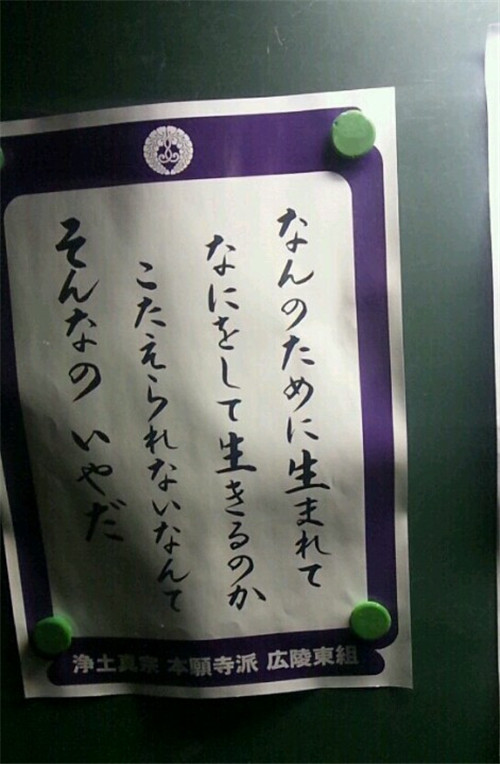 なんのために生まれて
なにをして生きるのか
こたえられないなんて
そんなの いやだ
浄土真宗 本願寺派 広陵東組